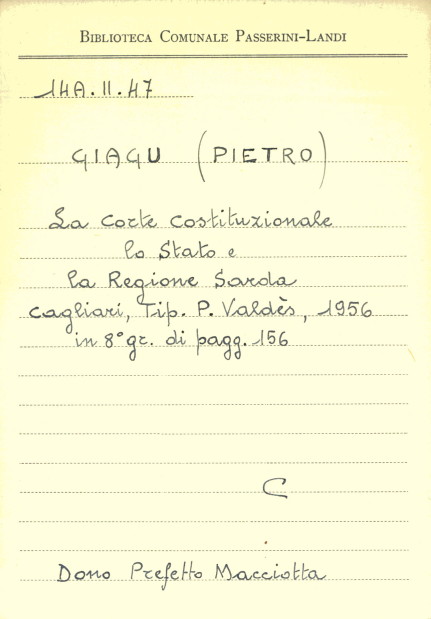 BIBLIOTECA COMUNALE PASSERINI-LANDI
14A.II.47
GIAGU (PIETRO)
La Corte Costituzionale
lo Stato e
la Regione Sarda
Cagliari, Tip. P. Valdès, 1956
in 8° gr. di pagg. 156
C
Dono Prefetto Macciotta